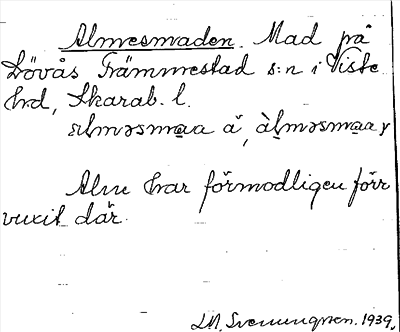 Almesmaden. Mad på
Lövås Främmestad s:n i Viste
hrd, Skarab. l.
almǝsmaa å, àlmǝsmaa y
Alm har förmodligen förr
vuxit där.
L.M. Svenungsson. 1939.